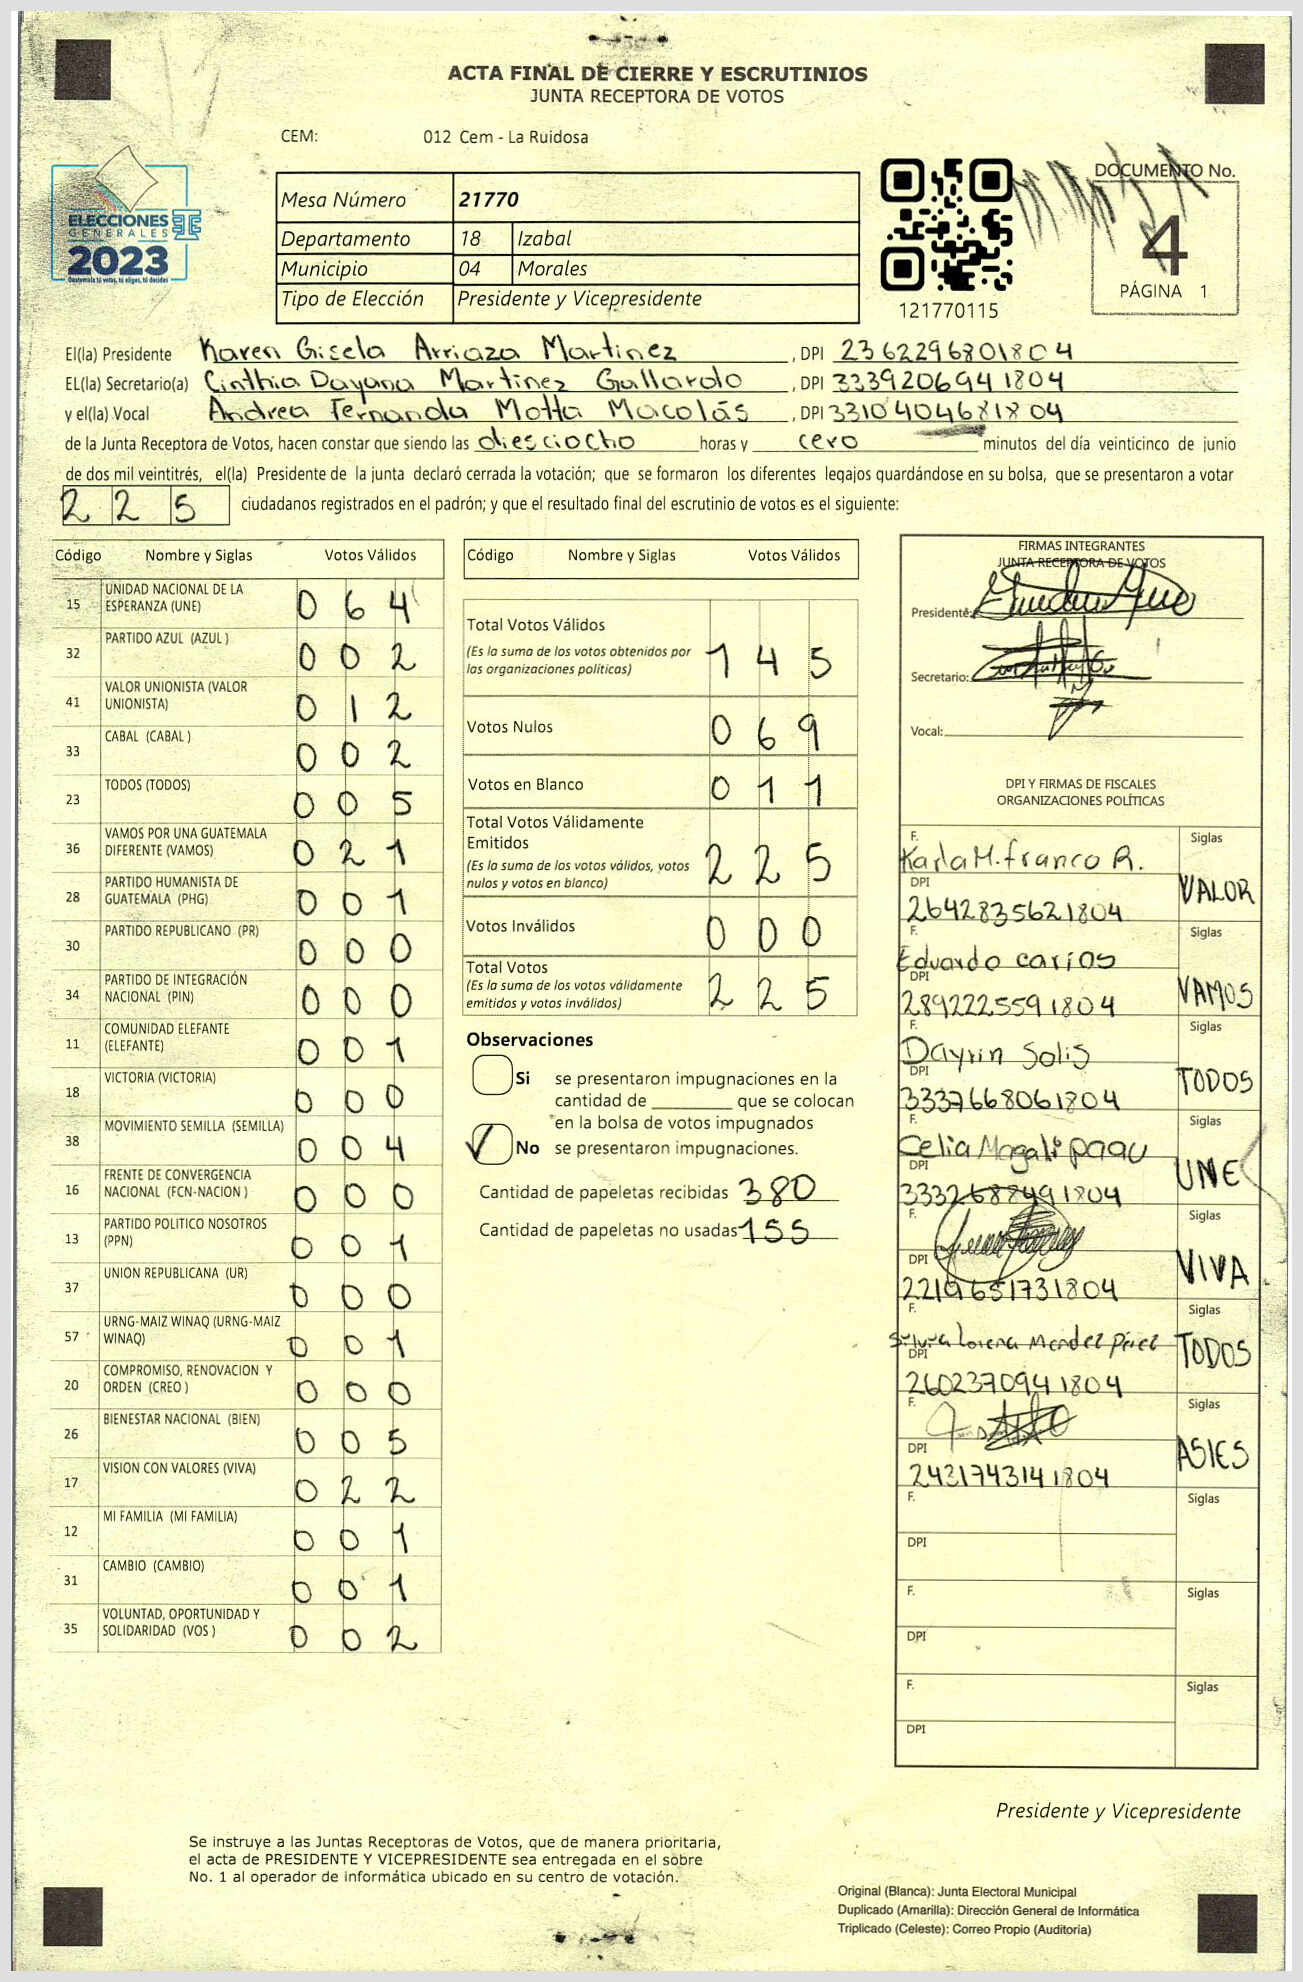 ACTA FINAL DE CIERRE Y ESCRUTINIOS
JUNTA RECEPTORA DE VOTOS
CEM: 012 Cem - La Ruidosa
ELECCIONES
GENERALES
2023
Guatemala tú votas, tú eliges, tú decides
Mesa Número 21770
Departamento 18 Izabal
Municipio 04 Morales
Tipo de Elección Presidente y Vicepresidente
121770115
DOCUMENTO No.
4
PÁGINA 1
El(la) Presidente Karen Gisela Arriaza Martinez, DPI 2362296801804
EL(la) Secretario(a) Cinthia Dayana Martinez Gallardo, DPI 3339206941804
y el(la) Vocal Andrea Fernanda Motta Macolás, DPI 3310404681804
de la Junta Receptora de Votos, hacen constar que siendo las diesciocho horas y cero minutos del día veinticinco de junio
de dos mil veintitrés, el(la) Presidente de la junta declaró cerrada la votación; que se formaron los diferentes legajos guardándose en su bolsa, que se presentaron a votar
225 ciudadanos registrados en el padrón; y que el resultado final del escrutinio de votos es el siguiente:
Código Nombre y Siglas Votos Válidos
15 UNIDAD NACIONAL DE LA ESPERANZA (UNE) 064
32 PARTIDO AZUL (AZUL ) 002
41 VALOR UNIONISTA (VALOR UNIONISTA) 012
33 CABAL (CABAL ) 002
23 TODOS (TODOS) 005
36 VAMOS POR UNA GUATEMALA DIFERENTE (VAMOS) 021
28 PARTIDO HUMANISTA DE GUATEMALA (PHG) 001
30 PARTIDO REPUBLICANO (PR) 000
34 PARTIDO DE INTEGRACIÓN NACIONAL (PIN) 000
11 COMUNIDAD ELEFANTE (ELEFANTE) 001
18 VICTORIA (VICTORIA) 000
38 MOVIMIENTO SEMILLA (SEMILLA) 004
16 FRENTE DE CONVERGENCIA NACIONAL (FCN-NACION ) 000
13 PARTIDO POLITICO NOSOTROS (PPN) 001
37 UNION REPUBLICANA (UR) 000
57 URNG-MAIZ WINAQ (URNG-MAIZ WINAQ) 001
20 COMPROMISO, RENOVACION Y ORDEN (CREO ) 000
26 BIENESTAR NACIONAL (BIEN) 005
17 VISION CON VALORES (VIVA) 022
12 MI FAMILIA (MI FAMILIA) 001
31 CAMBIO (CAMBIO) 001
35 VOLUNTAD, OPORTUNIDAD Y SOLIDARIDAD (VOS ) 002
Código Nombre y Siglas Votos Válidos
Total Votos Válidos
(Es la suma de los votos obtenidos por las organizaciones políticas) 145
Votos Nulos 069
Votos en Blanco 011
Total Votos Válidamente Emitidos
(Es la suma de los votos válidos, votos nulos y votos en blanco) 225
Votos Inválidos 000
Total Votos
(Es la suma de los votos válidamente emitidos y votos inválidos) 225
Observaciones
Si se presentaron impugnaciones en la
cantidad de ________ que se colocan
en la bolsa de votos impugnados
No se presentaron impugnaciones.
Cantidad de papeletas recibidas 380
Cantidad de papeletas no usadas 155
FIRMAS INTEGRANTES
JUNTA RECEPTORA DE VOTOS
Presidente:
Secretario:
Vocal:
DPI Y FIRMAS DE FISCALES
ORGANIZACIONES POLÍTICAS
F. Karla M. franco R. Siglas
DPI 2642835621804 VALOR
F. Eduardo carlos Siglas
DPI 2892225591804 VAMOS
F. Dayrin Solis Siglas
DPI 3337668061804 TODOS
F. Celia Magali paau Siglas
DPI 3332688491804 UNE
F. Siglas
DPI 2219651731804 VIVA
F. Lorena Mendez Siglas
DPI 2602370941804 TODOS
F. Siglas
DPI 2431743141804 ASIES
F. Siglas
DPI
F. Siglas
DPI
F. Siglas
DPI
Presidente y Vicepresidente
Se instruye a las Juntas Receptoras de Votos, que de manera prioritaria,
el acta de PRESIDENTE Y VICEPRESIDENTE sea entregada en el sobre
No. 1 al operador de informática ubicado en su centro de votación.
Original (Blanca): Junta Electoral Municipal
Duplicado (Amarilla): Dirección General de Informática
Triplicado (Celeste): Correo Propio (Auditoria)